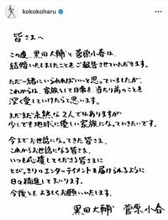 kokokoharu
皆さまへ
この度、黒田大輔と菅原小春は、
結婚いたしましたことをご報告させていただきます。
ただ一緒にいられればいいと思っていましたが、
これからは、家族として日常を積み重ねて
深く愛していけたらと思います。
まだまだ未熟な2人ではありますが
少しでも地球に優しい家族になっていきたいです。
今までお世話になってきた皆さま、
これからお世話になる皆さま、
いつも応援してくださる皆さまに
とびっきりのエンターテイメントを届けられるように
日々精進してまいります。
今後ともよろしくお願いいたします。
黒田大輔 菅原小春